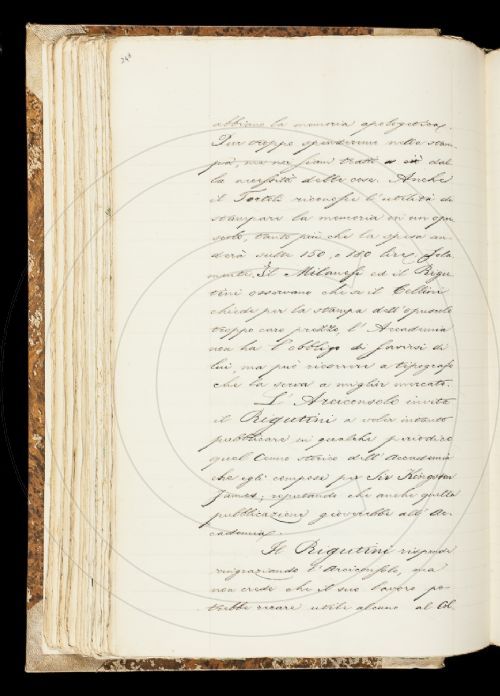 abbiamo la memoria apologetica.
Pur troppo spenderemo nella stam-
pa, ma noi siam tratti a ciò dal-
la necessità delle cose. Anche
il Tortoli riconosce l'utilità di
stampare la memoria in un opu-
scolo, tanto più che la spesa an-
derà sulle 150, o 180 lire sola-
mente. Il Milanesi ed il Rigu-
tini osservano che se il Cellini
chiede per la stampa dell'opuscolo
troppo caro prezzo, l'Accademia
non ha l'obbligo di servirsi di
lui, ma può ricorrere a tipografo
che la serva a miglior mercato.
L'Arciconsolo invita
il Rigutini a voler intanto
pubblicare in qualche periodico
quel Cenno storico dell'Accademia
che egli compose per Sir Kingston
James, reputando che anche quella
pubblicazione gioverebbe all'Ac-
cademia.
Il Rigutini risponde
ringraziando l'Arciconsolo, ma
non crede che il suo lavoro po-
trebbe recare utile alcuno al Col-